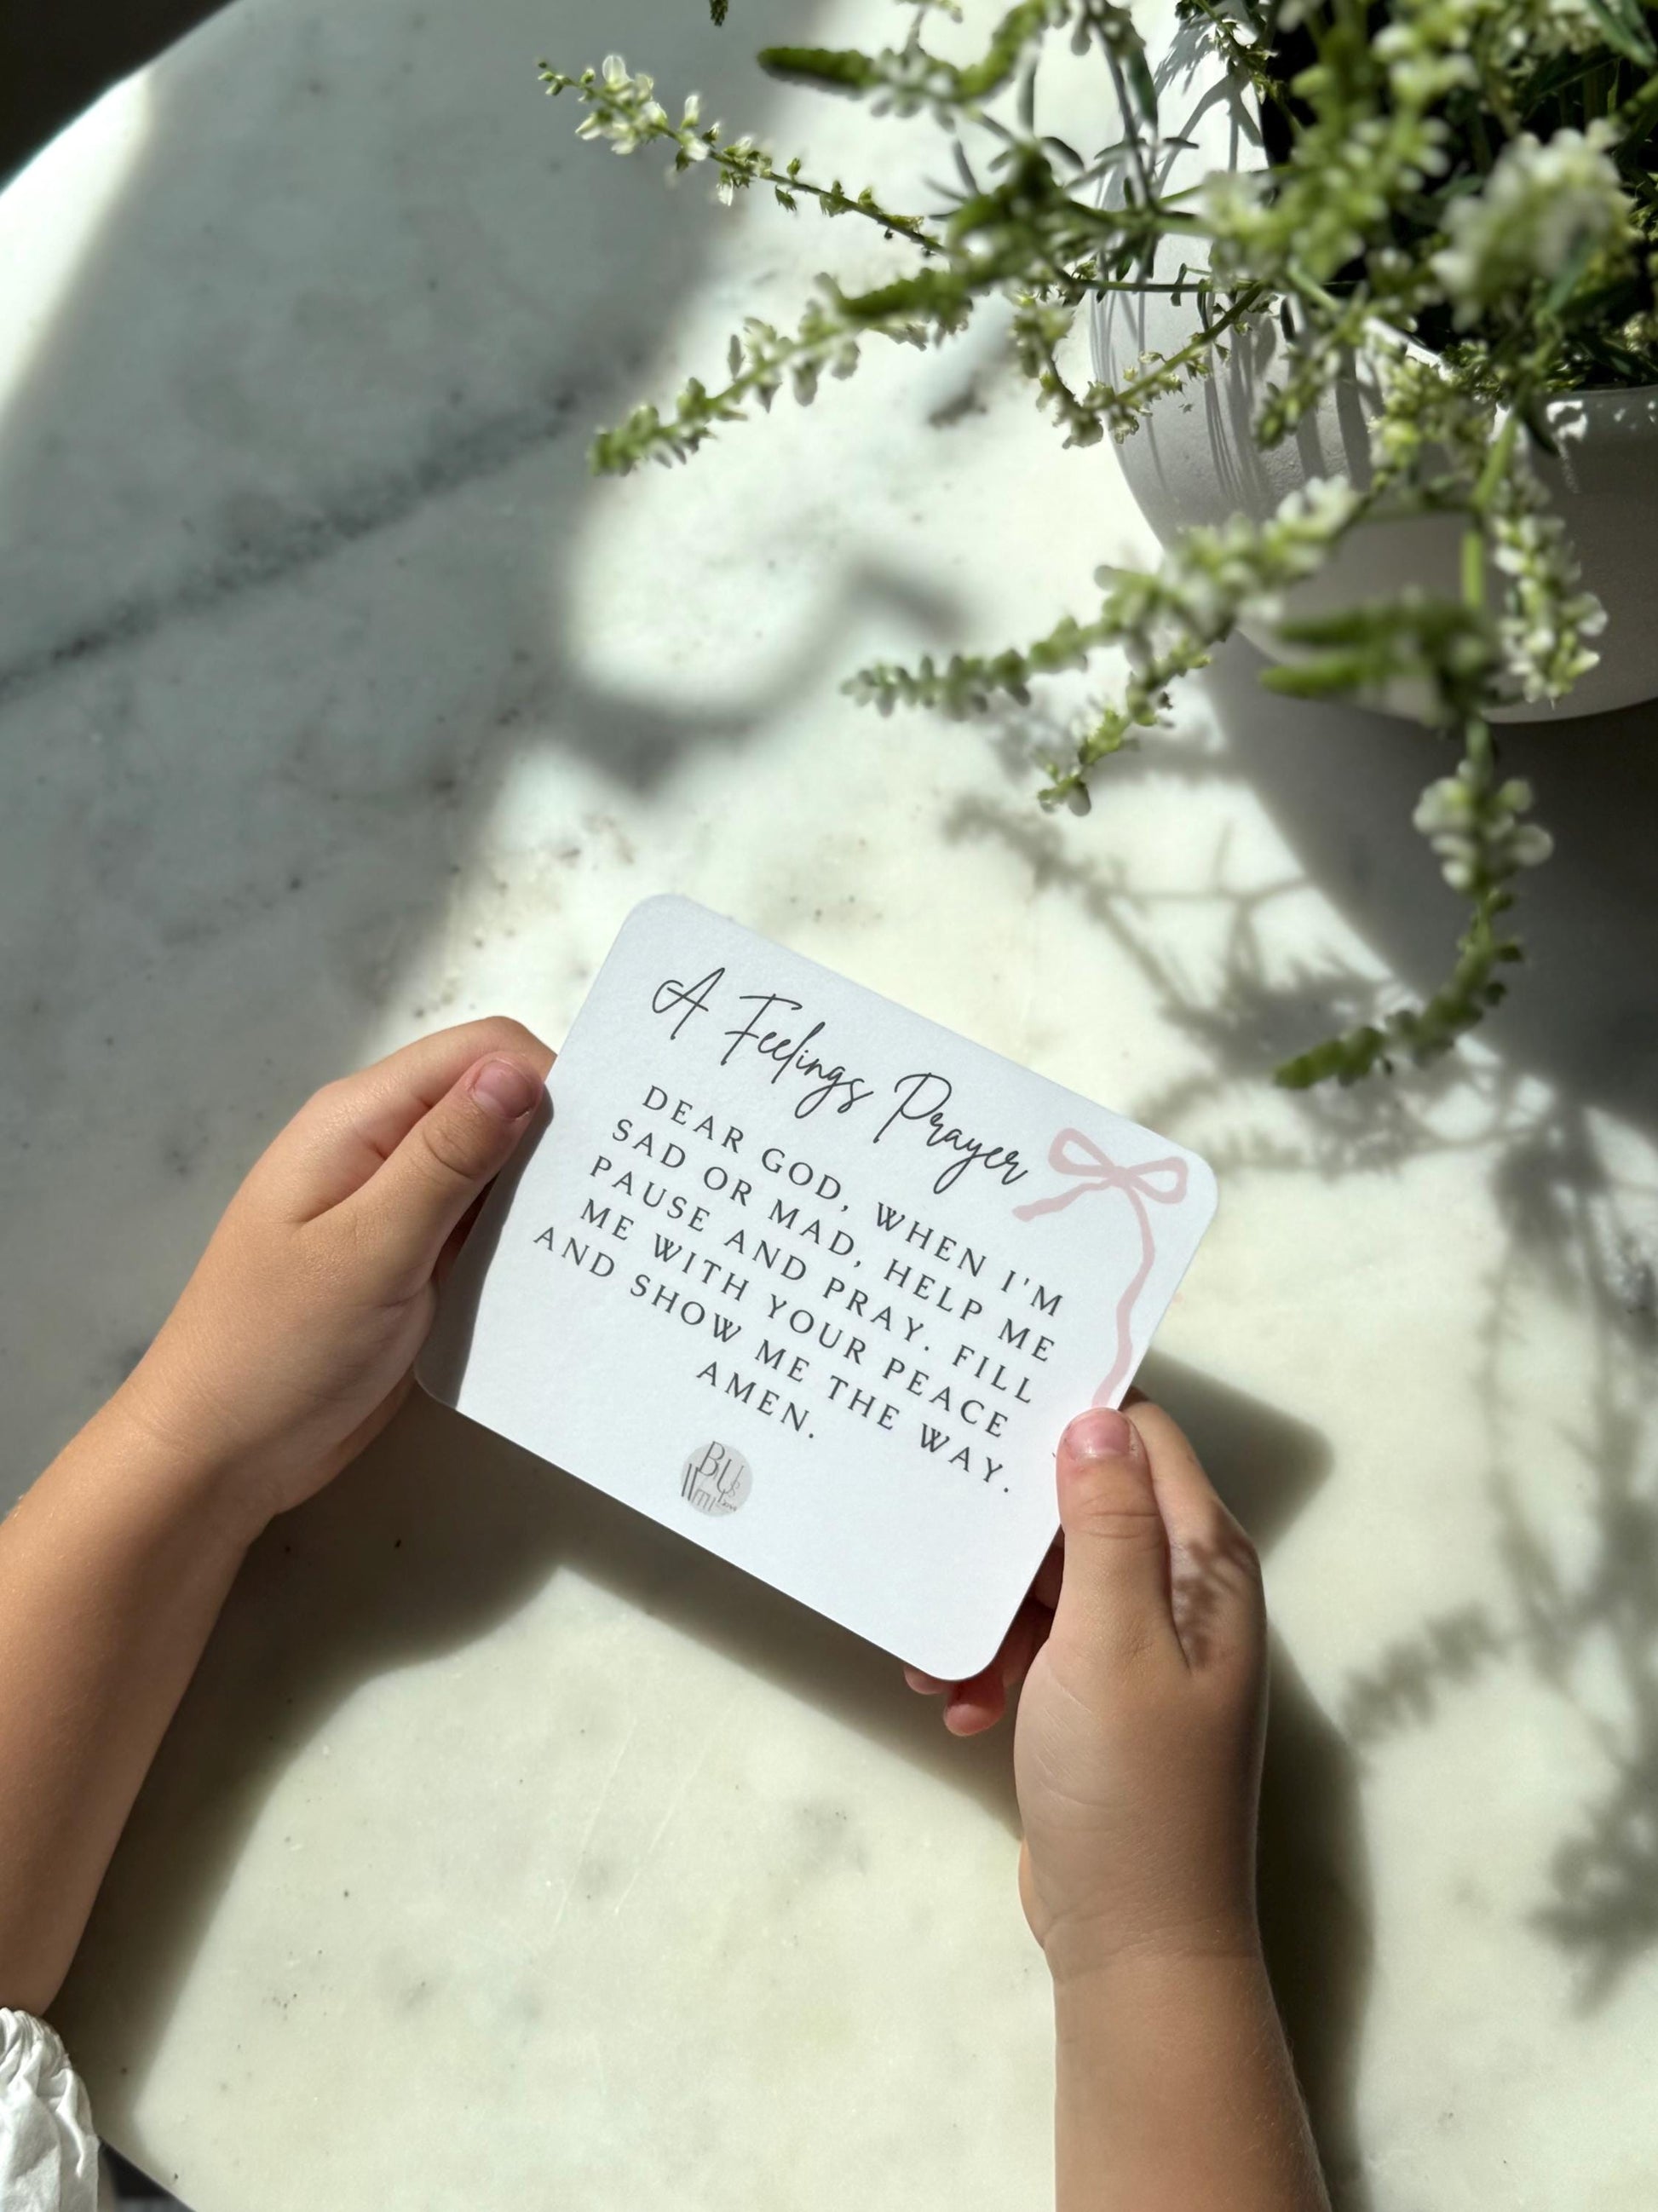 A Feelings Prayer
DEAR GOD, WHEN I'M
SAD OR MAD, HELP ME
PAUSE AND PRAY. FILL
ME WITH YOUR PEACE
AND SHOW ME THE WAY.
AMEN.